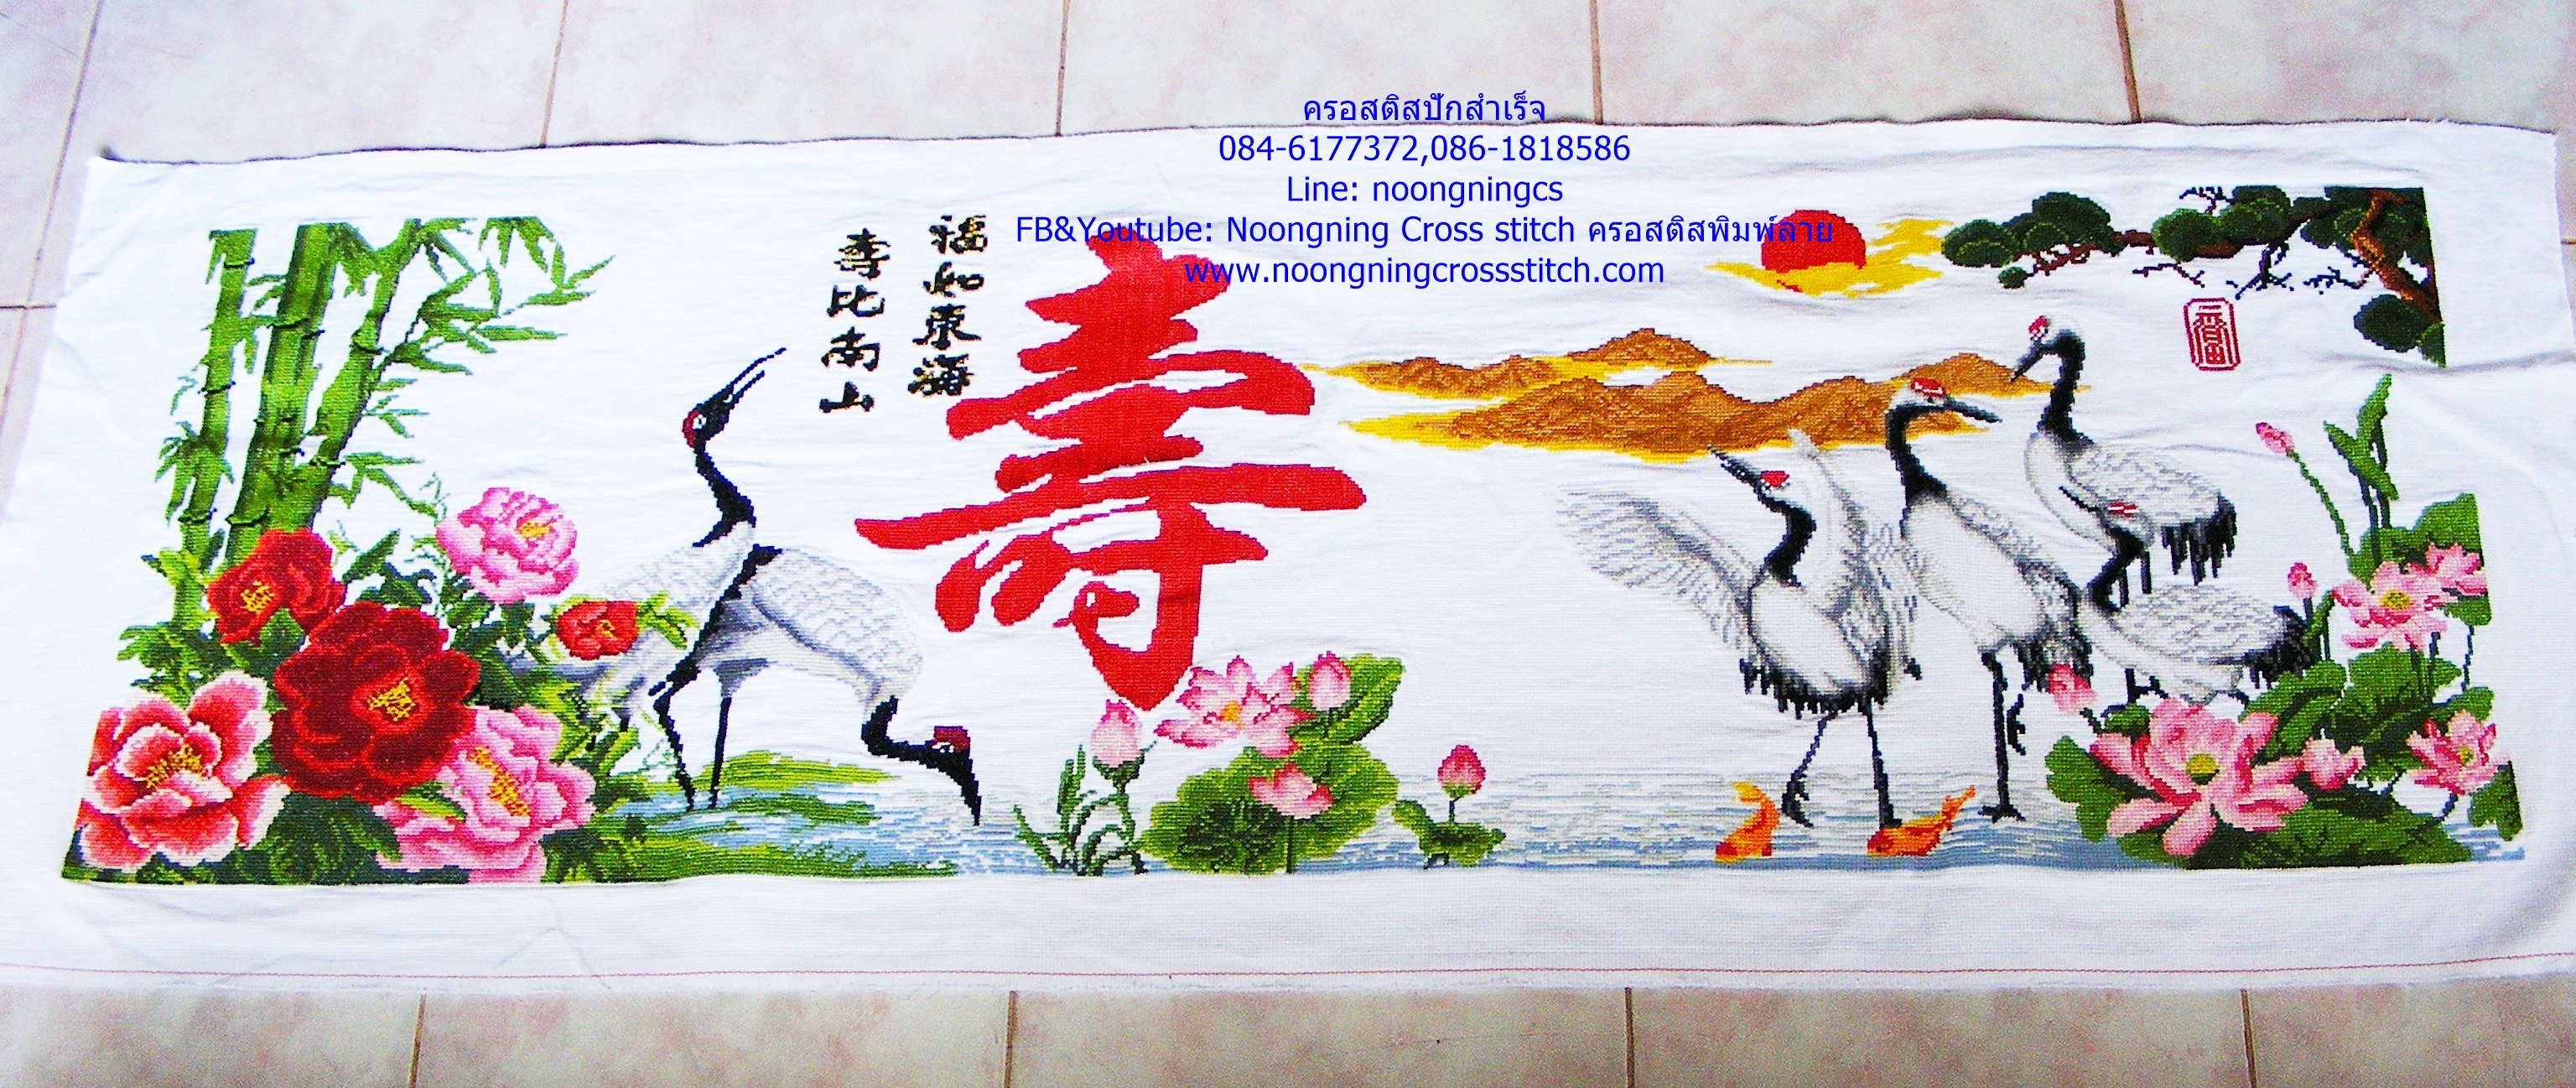 ครอสติสปักสำเร็จ
084-6177372,086-1818586
Line: noongningcs
FB&Youtube: Noongning Cross stitch ครอสติสพิมพ์ลาย
www.noongningcrossstitch.com
福如東海
壽比南山
寿